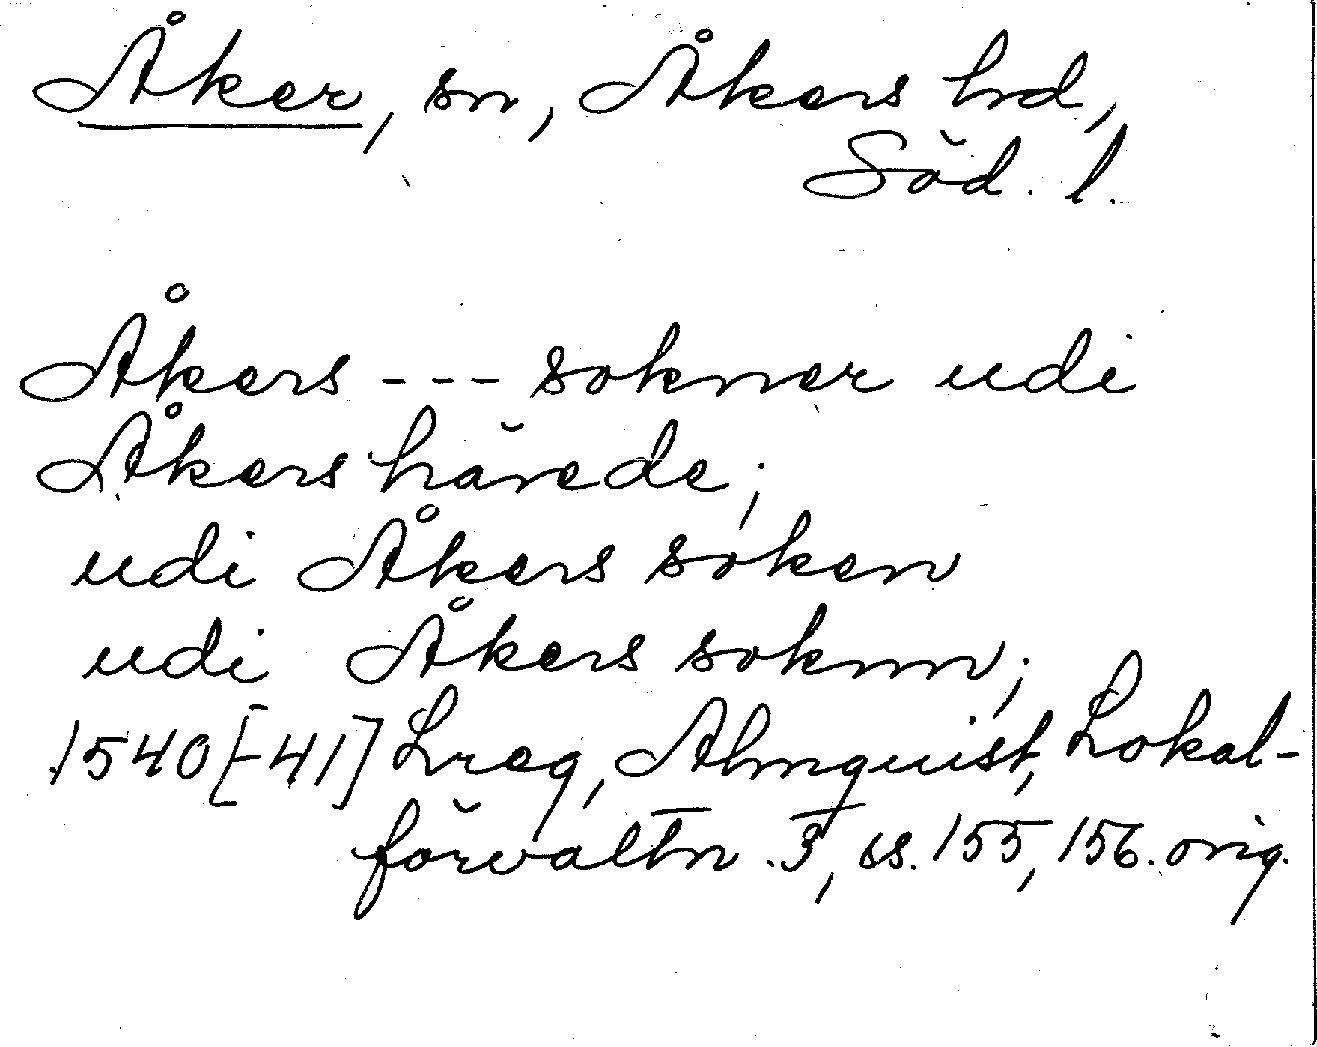 Åker, sn, Åkers hd,
Söd. l.
Åkers --- sokner udi
Åkers härede;
udi Åkers soken
udi Åkers soknn;
1540[-41] Lreg, Almquist, Lokal-
förvaltn. 3, s. 155, 156. orig.